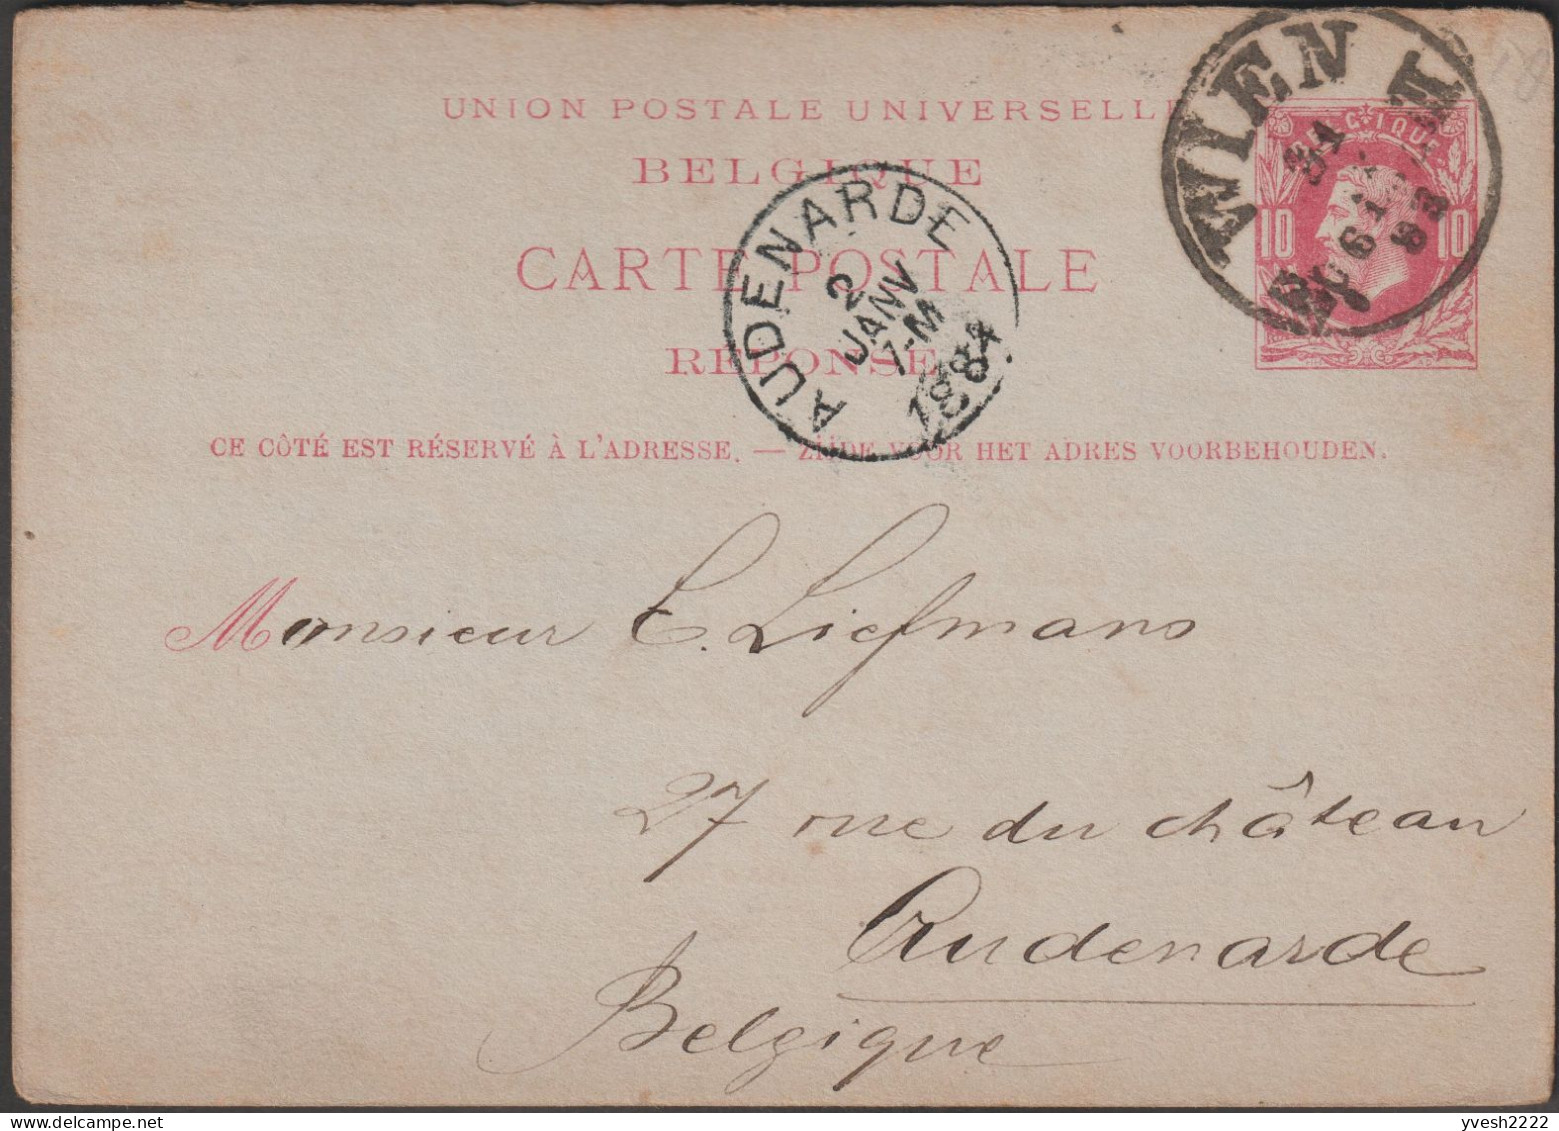 UNION POSTALE UNIVERSELLE
BELGIQUE
CARTE POSTALE
RÉPONSE
CE CÔTÉ EST RÉSERVÉ À L'ADRESSE. — ZIJDE VOOR HET ADRES VOORBEHOUDEN.
WIEN
31
83
BELGIQUE
10 10
AUDENARDE
2
JANV
7-M
1884
Monsieur C. Liefmans
27 rue du château
Audenarde
Belgique
yvesh2222